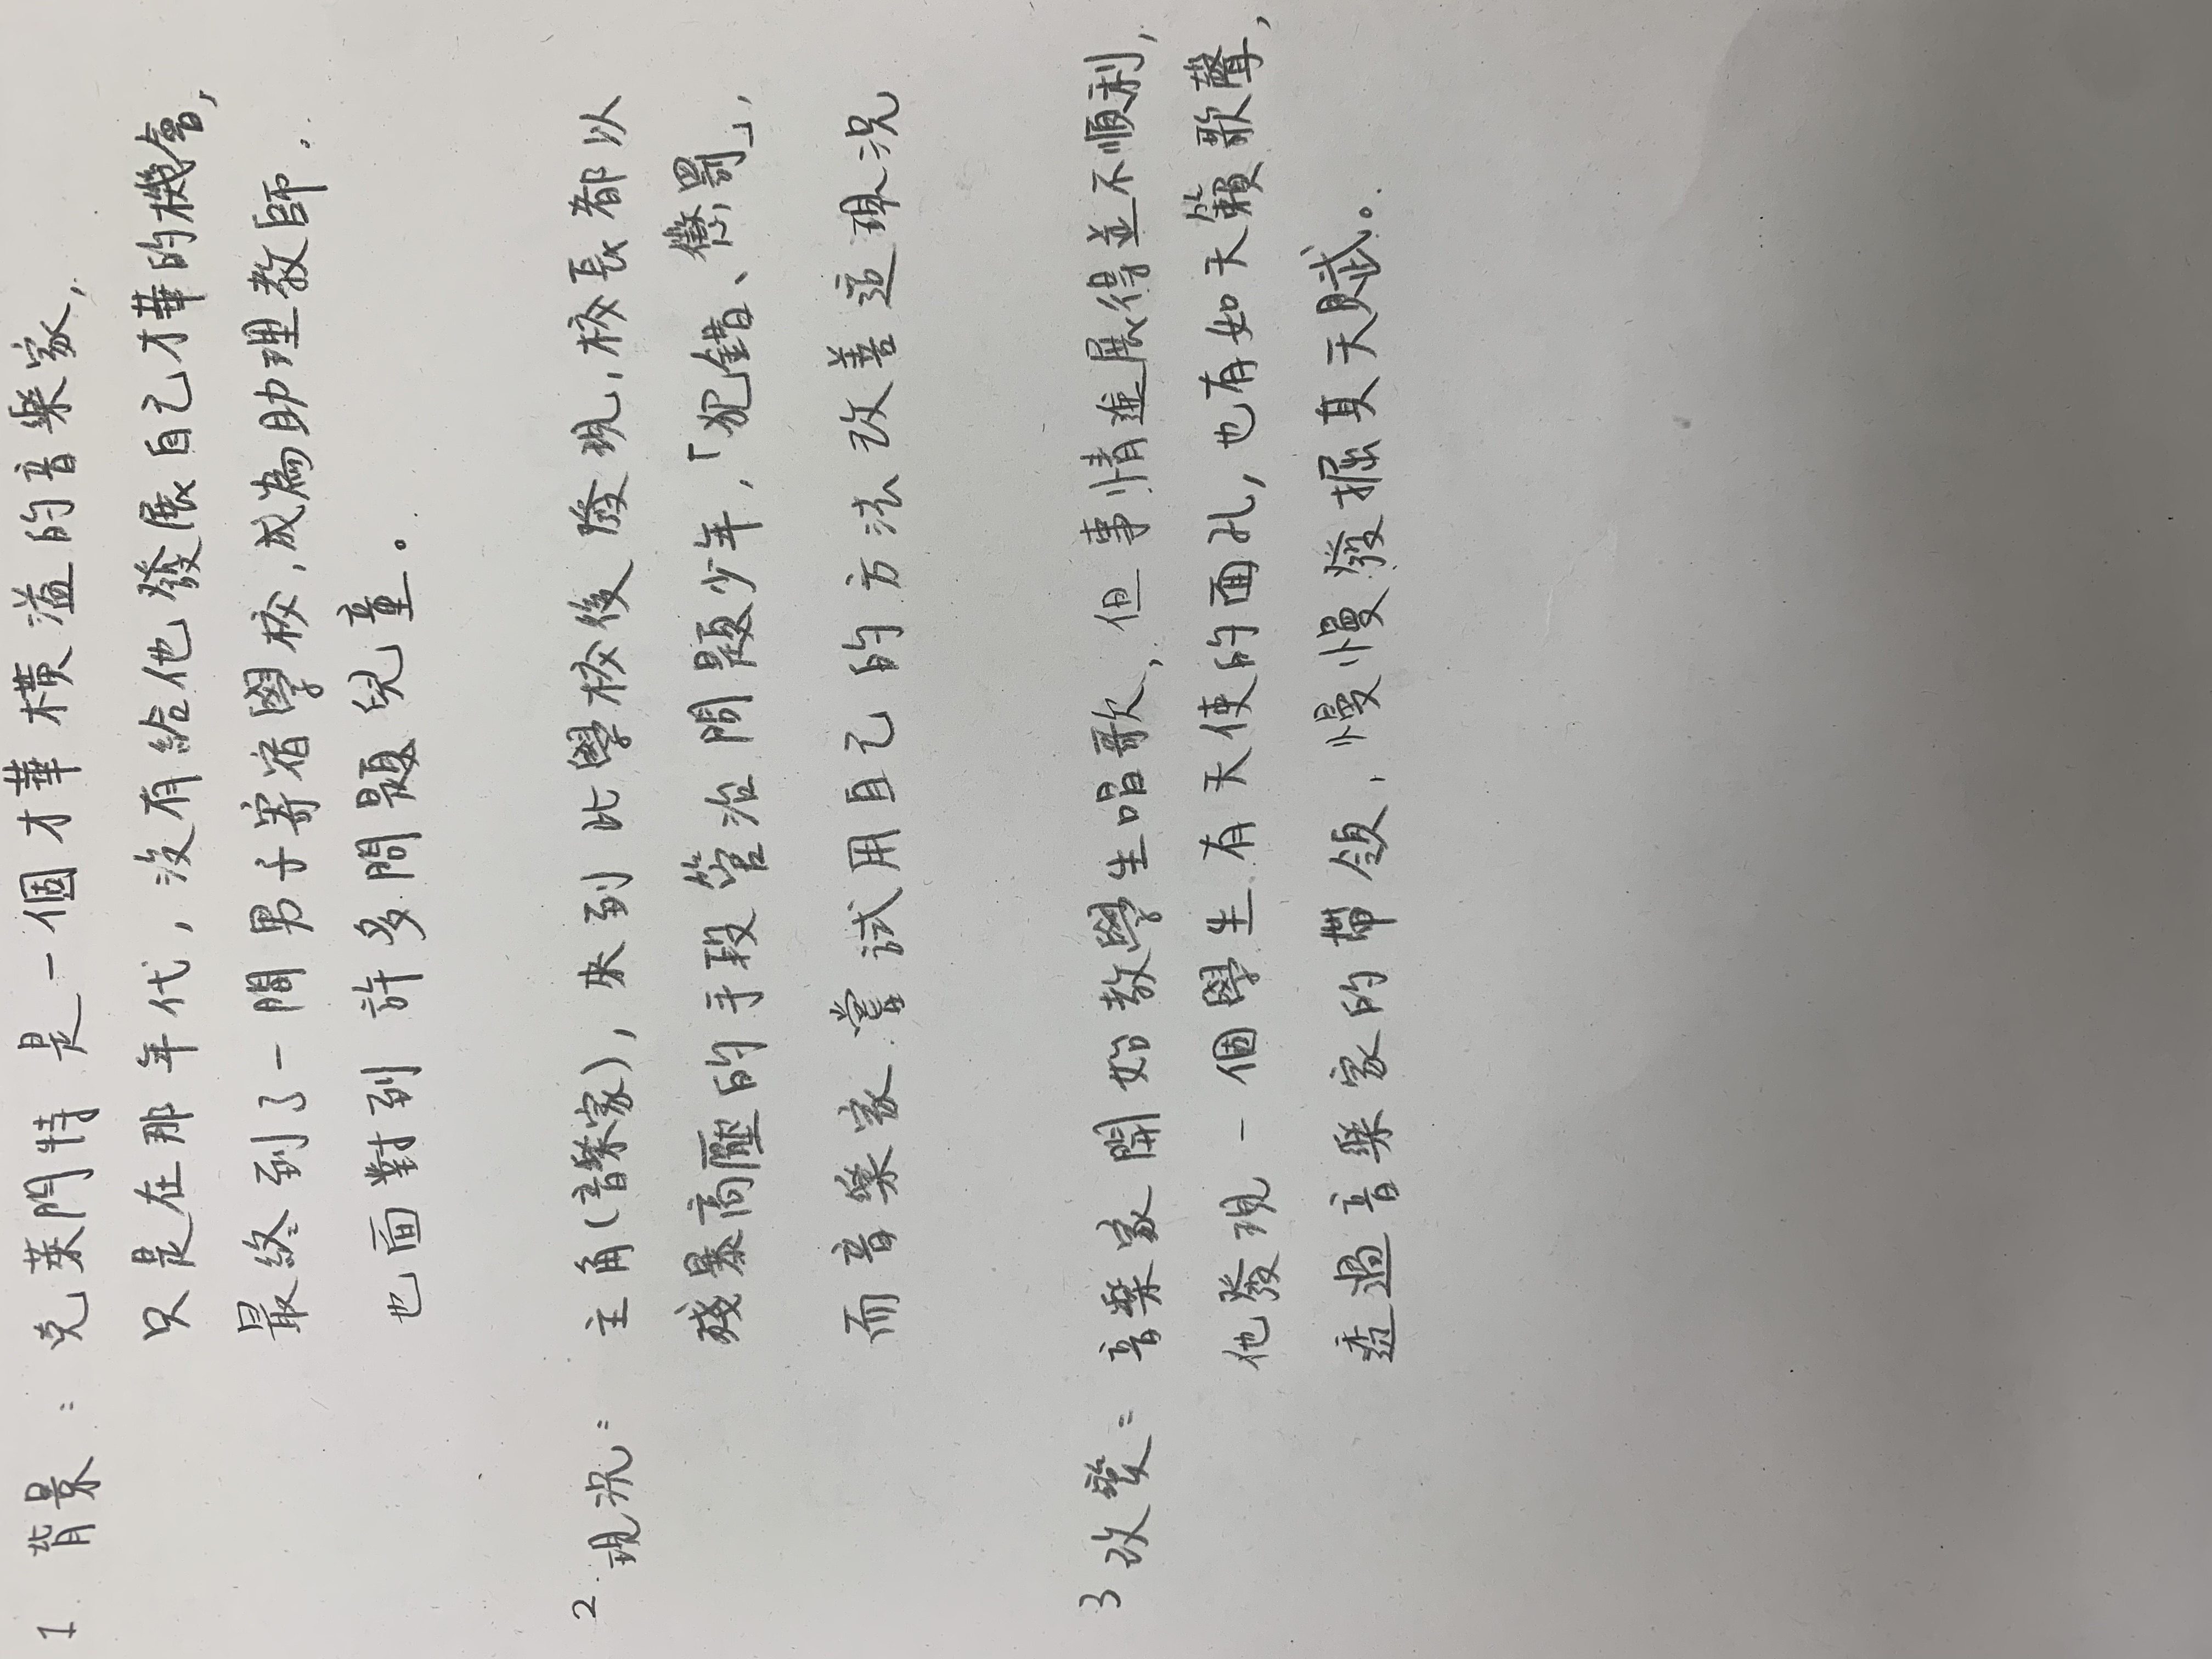 1. 背景：克萊門特是一個才華橫溢的音樂家,
只是在那年代，沒有給他發展自己才華的機會,
最終到了一間男子寄宿學校,成為助理教師.
也面對到許多問題兒童。
2. 現況：主角(音樂家)，來到此學校後發現,校長都以
殘暴高壓的手段管治問題少年,「犯錯、懲罰」,
而音樂家嘗試用自己的方法改善這現況
3 改變：音樂家開始教學生唱歌,但事情進展得並不順利,
他發現一個學生有天使的面孔,也有如天籟歌聲,
透過音樂家的帶領,慢慢發掘其天賦。